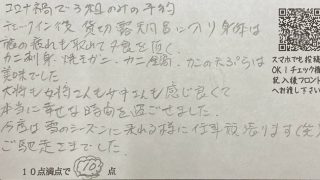 コロナ禍で3組のみの予約
チェックイン後 貸切露天風呂に入り身体は
旅の疲れも取れて夕食を頂く。
カニ刺身・焼きガニ・カニ全部、カニの天ぷらは
美味でした
大将も女将さんも 感じ良くて
本当に幸せな時間を過ごせました。
今度は雪のシーズンに来れる様に仕事頑張ります(笑)
ご馳走さまでした。
10点満点で 10 点
スマホでも投稿
OK!チェック欄
記入後フロント
へお渡し下さい